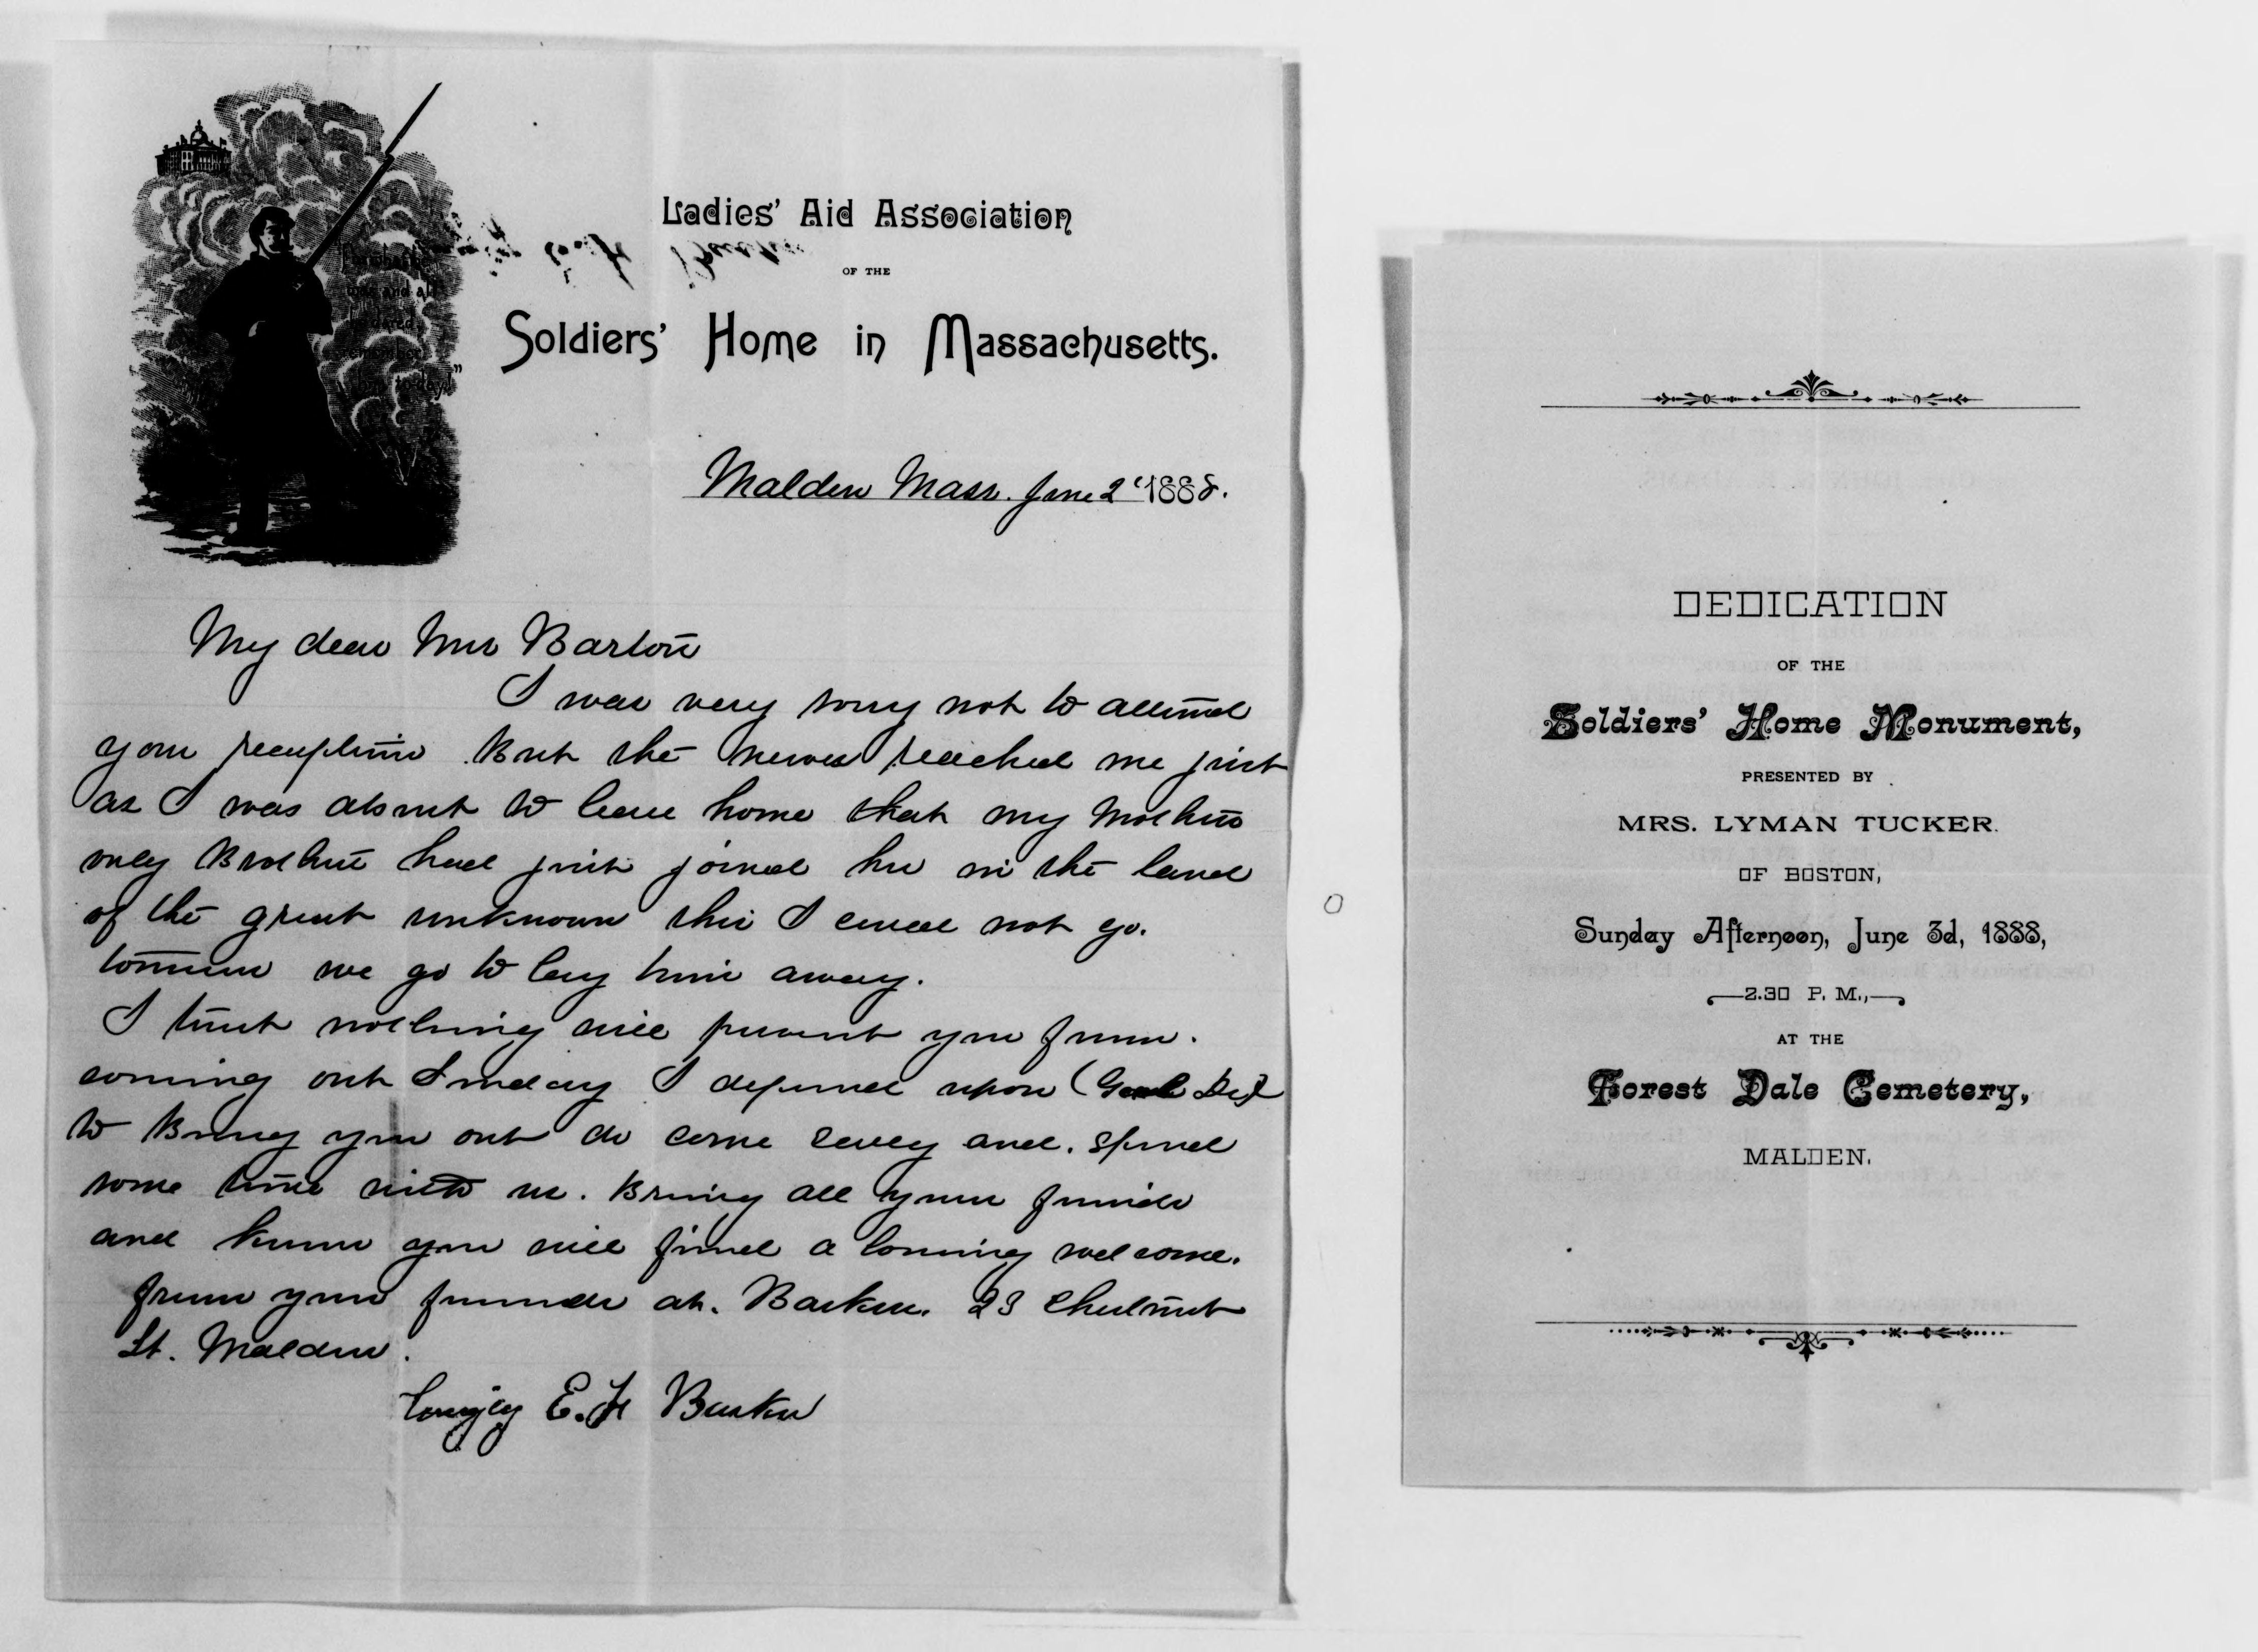 Ladies' Aid Association
OF THE
Soldiers' Home in Massachusetts.
was and all
he dared,
remember
him to-day!"
Malden Mass. June 2 1888.
My dear Miss Barton
I was very sorry not to attend
your reception. But the news reached me just
as I was about to leave home that my Mothers
only Brother had just joined her in the land
of the great unknown this I could not go.
tomorrow we go to lay him away.
I trust nothing will prevent you from.
coming out Sunday I depend upon
to Bring you out do come early and. spend
some time with us. Bring all your friends
and know you will find a loving welcome.
from your friends at. Barker. 23 Chestnut
St. Malden.
Lovingly E. F Barker
DEDICATION
OF THE
Soldiers' Home Monument,
PRESENTED BY
MRS. LYMAN TUCKER.
OF BOSTON,
Sunday Afternoon, June 3d, 1888,
2.30 P. M.,
AT THE
Forest Dale Cemetery,
MALDEN.